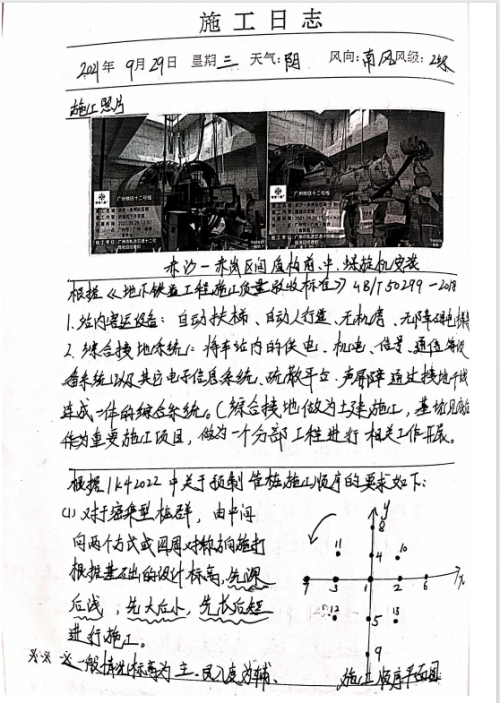 施工日志
2021年 9月29日 星期三 天气:阴 风向:南风 风级:2级
施工照片
广州地铁十二号线
广州地铁十二号线
赤沙—赤岗区间盾构前、中、螺旋机安装
根据《地下铁道工程施工质量验收标准》GB/T50299-2018
1.站内客运设备:自动扶梯、自动人行道、无机房、无障碍电梯
2.综合接地系统:将车站内的供电、机电、信号、通信等设
备系统以及其它电子信息系统、疏散平台、声屏障通过接地干线
连成一体的综合系统。(综合接地做为土建施工,基坑见底后
作为重要施工项目,做为一个分部工程进行相关工作开展。
根据1k42022中关于预制管桩施工顺序的要求如下:
(1)对于密集型桩群,由中间
向两个方式或四周对称方向施打
根据基础的设计标高,先深
后浅,先大后小,先长后短
进行施工。
※※※一般情况标高为主,贯入度为辅、
y
8
11
4
10
7
3
1
2
6
x
12
5
13
9
施工顺序平面图